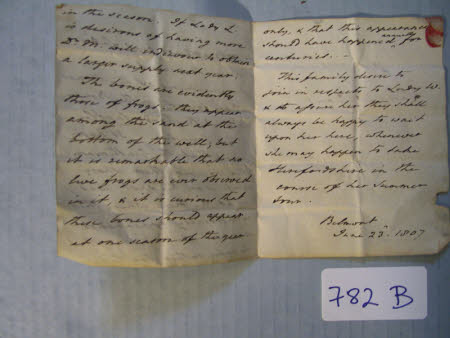 in the season. If Lady L
is desirous of having more
Dr. M. will endeavour to obtain
a larger supply next year.
The bones are evidently
those of frogs - they appear
among the sand at the
bottom of the well, but
it is remarkable that no
live frogs are ever observed
in it, & it is curious that
these bones should appear
at one season of the year
only, & that this appearance
should have happened, annually for
centuries. -
This family desire to
join in respects to Lady W.
& to assure her they shall
always be happy to wait
upon her here, whenever
she may happen to take
Herefordshire in the
course of her Summer
tour.
Belmont
June 23d. 1807
782 B